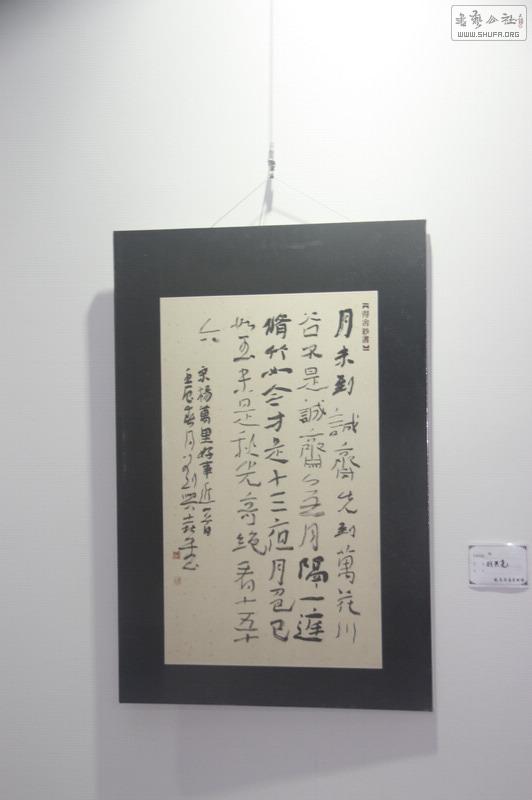 月未到誠齋先到萬花川
谷不是誠齋無月隔一庭
脩竹如今才是十三夜月色已
如玉未是秋光奇絕看十五十
六
宋楊萬里好事近一首
壬辰春月
書藝公社
WWW.SHUFA.ORG